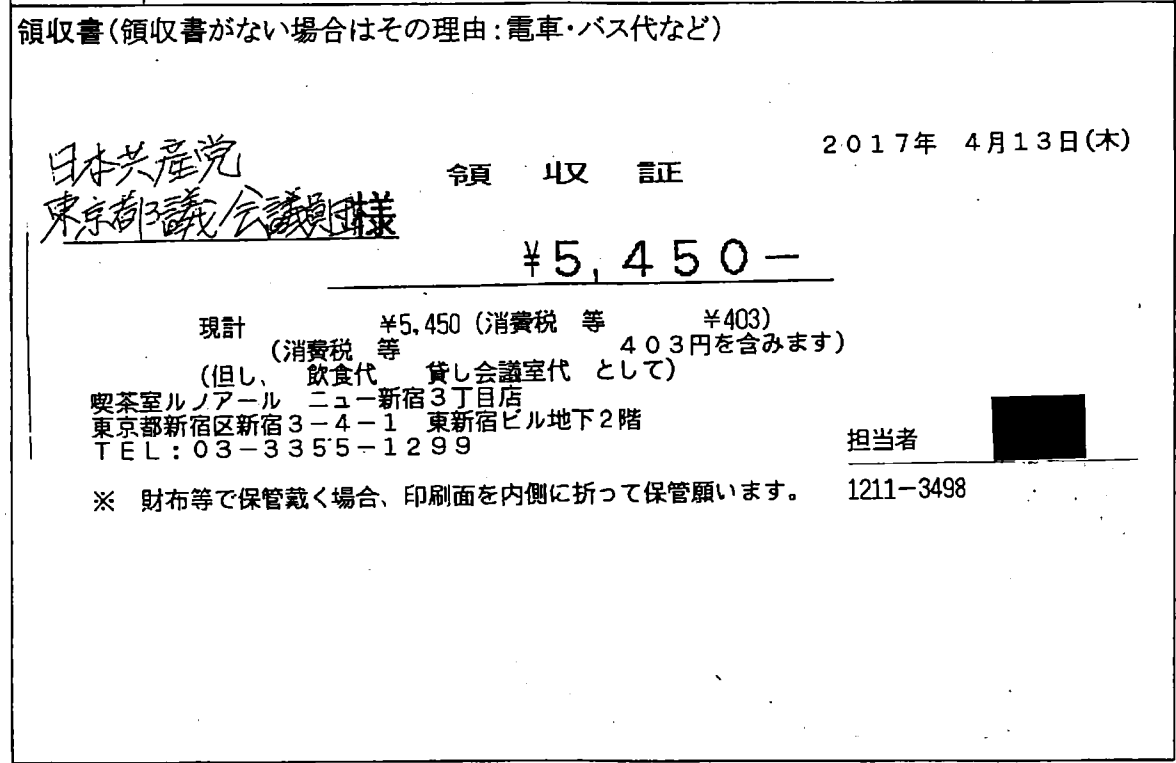 領収書(領収書がない場合はその理由:電車・バス代など)
2017年 4月13日(木)
日本共産党
東京都議会議員団様
領 収 証
¥5,450-
現計 ¥5,450 (消費税 等 ¥403)
(消費税 等 403円を含みます)
(但し、 飲食代 貸し会議室代 として)
喫茶室ルノアール ニュー新宿3丁目店
東京都新宿区新宿3-4-1 東新宿ビル地下2階
TEL:03-3355-1299
担当者
※ 財布等で保管戴く場合、印刷面を内側に折って保管願います。
1211-3498